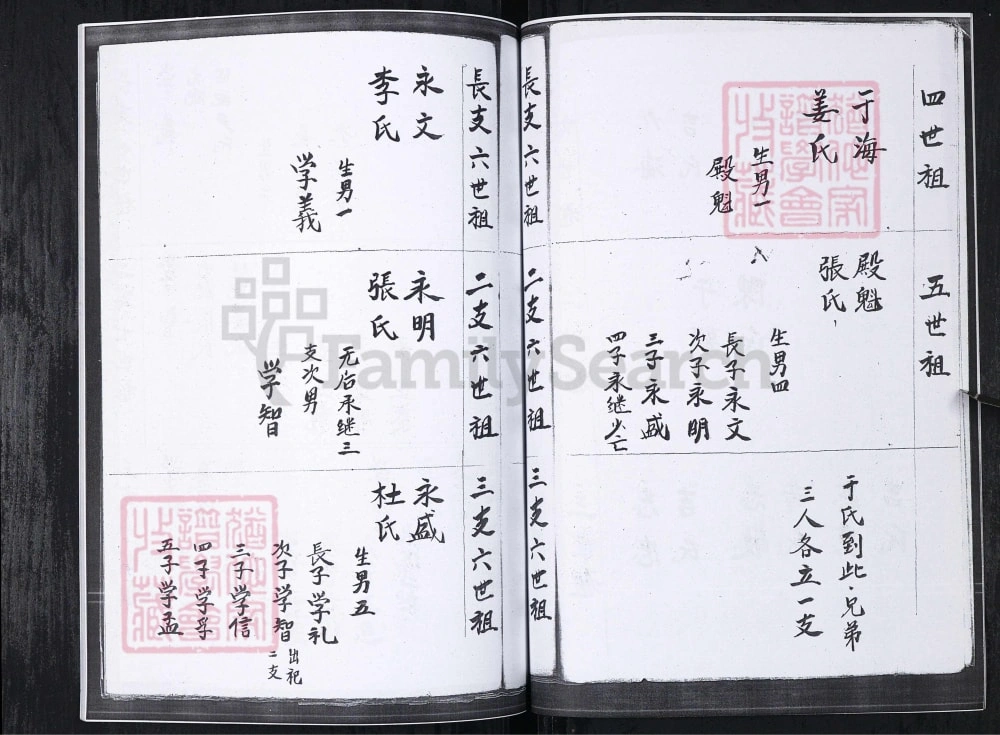 四世祖
于海
姜氏
生男一
殿魁
五世祖
殿魁
張氏
生男四
長子永文
次子永明
三子永盛
四子永继少亡
于氏到此.兄弟
三人各立一支
長支六世祖
二支六世祖
三支六世祖
長支六世祖
永文
李氏
生男一
学義
二支六世祖
永明
張氏
无后承继三
支次男
学智
三支六世祖
永盛
杜氏
生男五
長子学礼
次子学智
出祀
二支
三子学信
四子学孚
五子学孟
FamilySearch